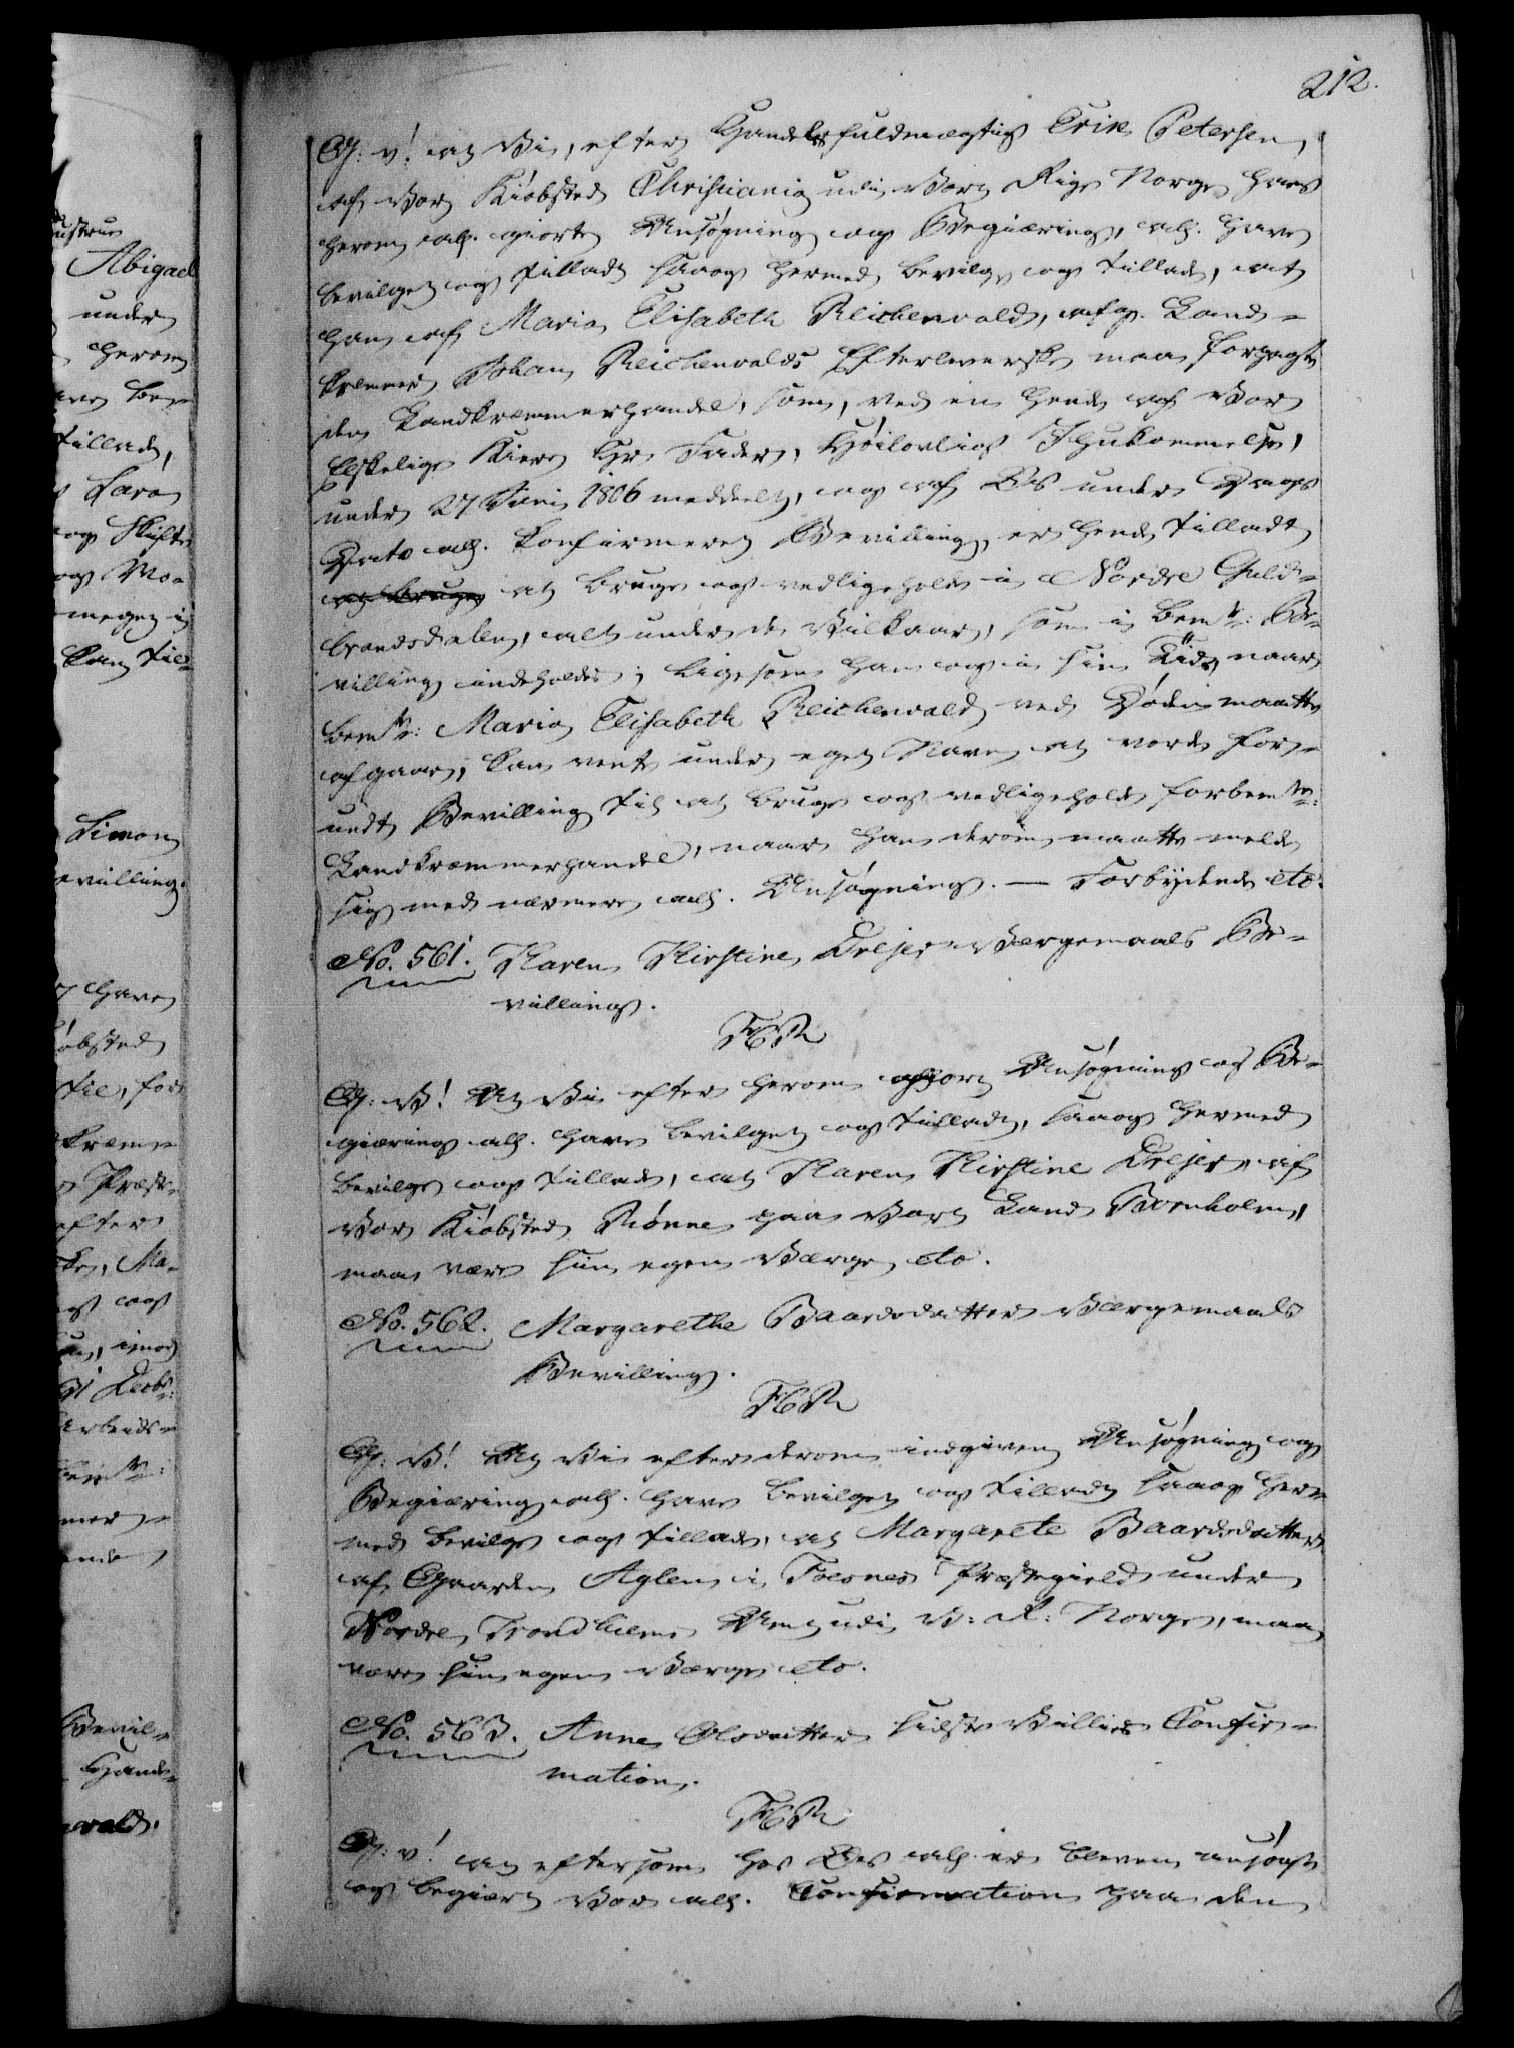 212.
G: v! at Vi, efter Handelsfuldmægtig Erik Petersen,
af Vor Kiøbsted Christiania udi Vort Rige Norge hans
herom all. giorte Ansøgning og Begiæring, all. have
bevilget og tilladt saa og hermed bevilge og tillade, at
han af Maria Elisabeth Reichenwald, afg. Land-
kræmmer Johan Reichenwalds Efterleverske maa forpagte
den Landkræmmerhandel, som, ved en hende af Vor
Elskelige Kiere Hr Fader, Høilovlig Ihukommelse,
under 27 Juni 1806 meddeelt, og af Os under Dags
Dato all. konfirmeret Bevilling, er hende tilladt
at bruge at bruge og vedligeholde i Nordre Guld-
brandsdalen, alt under de Vilkaar, som i bemte: Be-
villing indeholdes; ligesom han og i sin Tid, naar
bemte: Maria Elisabeth Reichenvald ved Døden maatte
afgaae, kan vente under eget Navn at vorde for-
undt Bevilling til at bruge og vedligeholde forbemte:
Landkræmmerhandel, naar han derom maatte melde
sig med nærmere all. Ansøgning. — Forbydende etc.
No. 561. Karen Kirstine Drejer Værgemaals Be-
villing.
F6R
G: V! At Vi efter herom giort Ansøgning og Be-
giæring all. have bevilget og tilladt, saa og hermed
bevilge og tillade, at Karen Kirstine Drejer, af
Vor Kiøbsted Rønne paa Vort Land Bornholm,
maa være sin egen Værge, etc.
No. 562. Margarethe Baardsdatter Værgemaals
Bevilling.
F6R
G: V! At Vi efter derom indgiven Ansøgning og
Begiæring all. have bevilget og tilladt saa og her-
med bevilge og tillade, at Margarete Baardsdatter
af Gaarden Aglen i Foesnes Præstegield under
Nordre Trondhiems Amt udi V: R: Norge, maa
være sin egen Værge etc.
No. 563. Anne Olsdatter sidste Villies Confir-
mation.
F6R
G: v! at eftersom hos Os all. er bleven ansøgt
og begiært Vor all. Confirmation paa den
Abigael
under
herom
tillade,
Sara
og Skifte
Simon
evilling.
have
øbsted
efter
og
Bevil-
Hand-
wald.